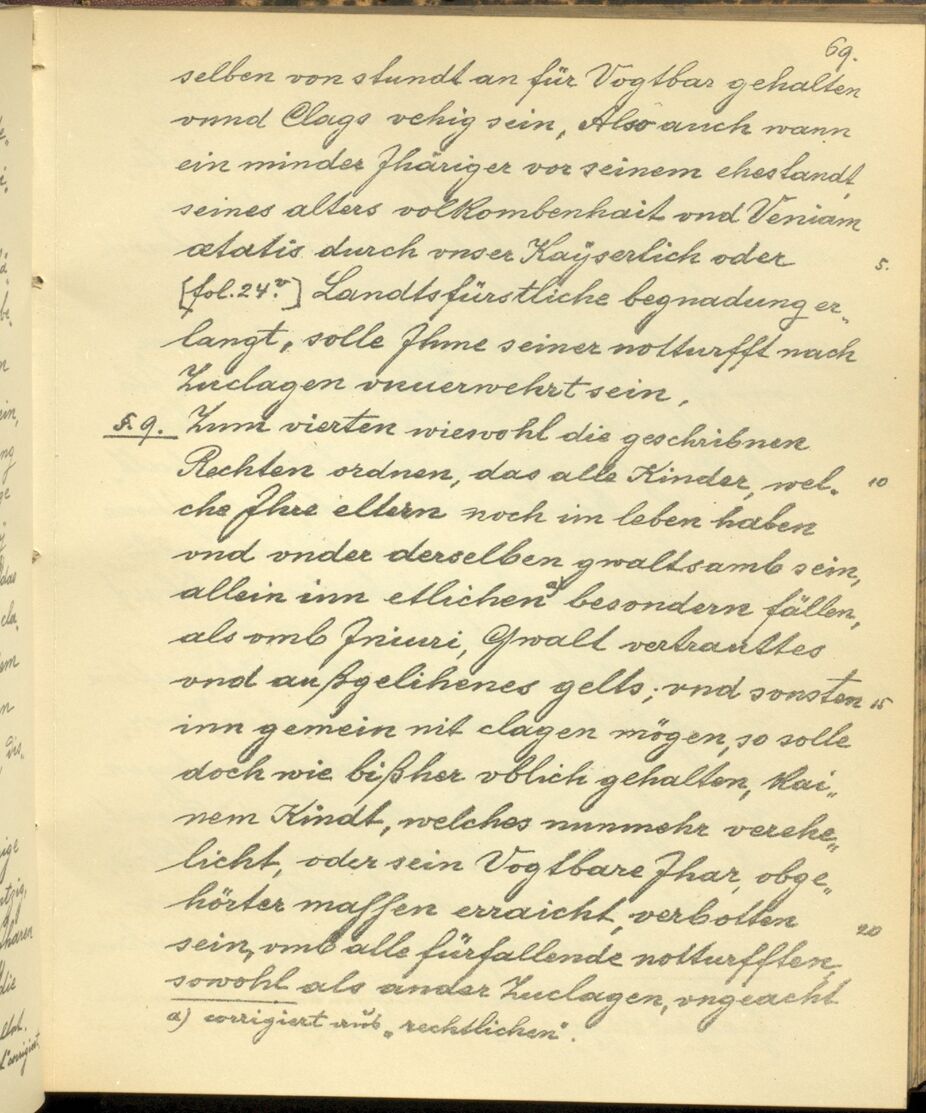 69.
selben von stundt an für Vogtbar gehalten
vnnd Clags vehig sein, Also auch wann
ein minder Jhäriger vor seinem ehestandt,
seines alters volkombenhait vnd Veniam
ætatis durch vnser Kaÿserlich oder 5.
[fol. 24.v] Landtsfürstliche begnadung er„
langt, solle Jhme seiner notturfft nach
Zuclagen vnuerwehrt sein,
§. 9. Zum vierten wiewohl die geschribnen
Rechten ordnen, das alle Kinder, wel- 10
che Jhre eltern noch im leben haben
vnd vnder derselben gwaltsamb sein,
allein inn etlichen a) besondern fällen,
als vmb Jniuri, Gwalt vertrauttes
vnd außgelihenes gelts; vnd sonsten 15
inn gemein nit clagen mögen, so solle
doch wie bißher vblich gehalten, kai„
nem Kindt, welches nunmehr verehe„
licht, oder sein Vogtbare Jhar, obge„
hörter massen erraicht, verbotten 20
sein, vmb alle fürfallende notturfften,
sowohl als ander Zuclagen, vngeacht
a) corrigiert aus „rechtlichen".